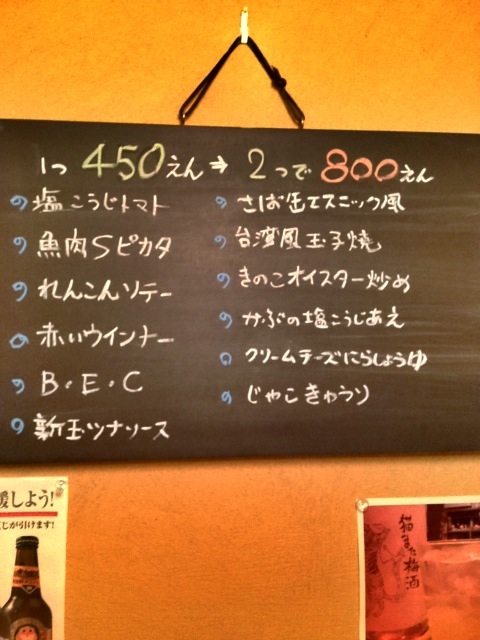 1つ 450えん→2つで 800えん
塩こうじトマト
魚肉Sピカタ
れんこんソテー
赤いウインナー
B・E・C
新玉ツナソース
さば缶エスニック風
台湾風玉子焼
きのこオイスター炒め
かぶの塩こうじあえ
クリームチーズにらしょうゆ
じゃこきゅうり
援しよう!
じが引けます!
猫また梅酒